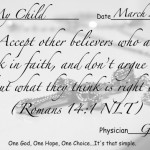 My Child Date March
Accept other believers who a
k in faith, and don't argue
ut what they think is right
(Romans 14:1 NLT)
Physician G
One God, One Hope, One Choice...It's that simple.